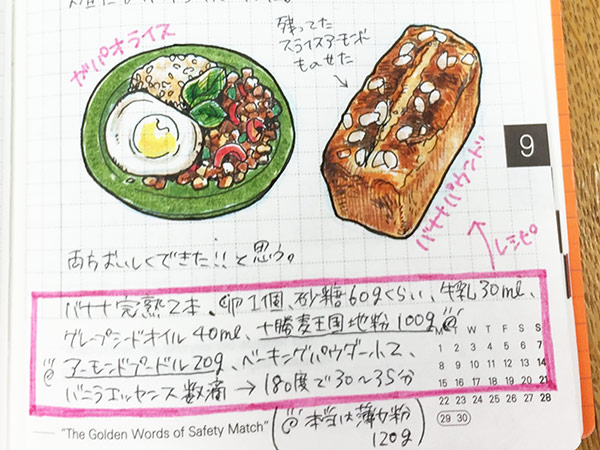 残ってた
スライスアーモンド
ものせた
ガパオライス
バナナパウンド
9
レシピ
両方おいしくできた!!と思う。
バナナ完熟2本、卵1個、砂糖60gくらい、牛乳30ml、
グレープシードオイル40ml、十勝麦王国地粉100g、
アーモンドプードル20g、ベーキングパウダー小2、
バニラエッセンス数滴 → 180度で30〜35分
(本当は薄力粉
120g)
M T W T F S S
1 2 3 4 5 6 7
8 9 10 11 12 13 14
15 16 17 18 19 20 21
22 23 24 25 26 27 28
29 30
"The Golden Words of Safety Match"